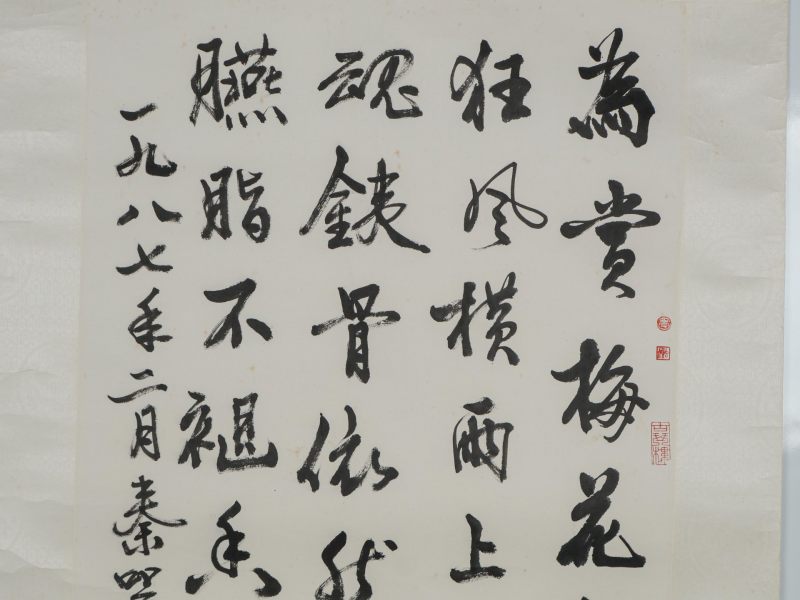 為賞梅花
狂風橫雨上
魂銕骨依然
臙脂不褪香
一九八七年二月秦